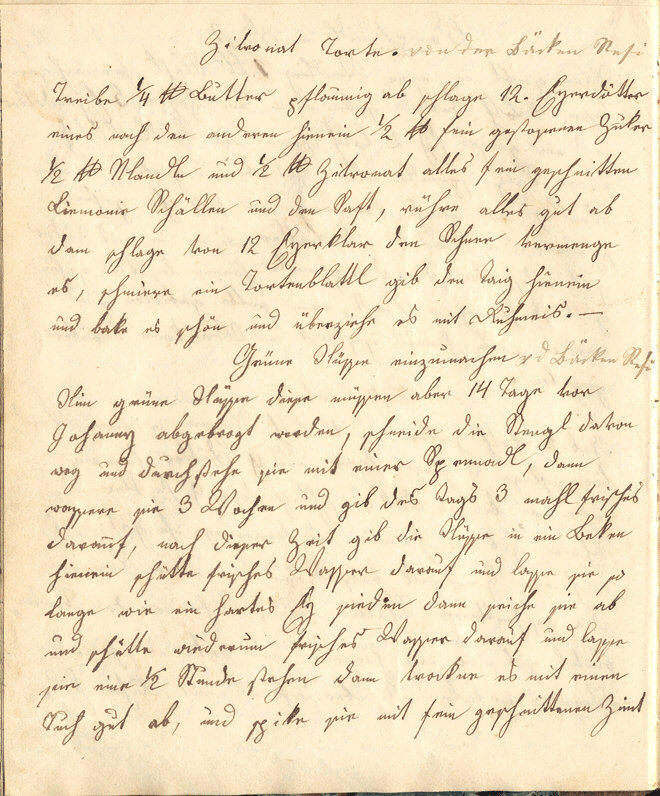 Zitronat Torte. von der Bäcken Resi
Treibe 1/4 ℔ Butter pflaumig ab schlage 12. Eyerdötter
eines nach den anderen hienein 1/2 ℔ fein gestossenen Zuker
1/2 ℔ Mandle und 1/2 ℔ Zitronat alles fein geschnitten
Liemonie Schällen und den Saft, rühre alles gut ab
dann schlage von 12 Eyerklar den Schnee vermenge
es, schmiere ein Tortenblattl gib den Taig hienein
und bake es schön und überziehe es mit
Grüne Nüsse einzumachen v d Bäcken Resi
Nim grüne Nüsse diese müssen aber 14 Tage vor
Johanny abgebrogt werden, schneide die Stengl davon
weg und durchstehe sie mit einer Spennadl, dann
wassere sie 3 Wochen und gib des Tags 3 mahl frisches
darauf, nach dieser Zeit gib die Nüsse in ein Beken
hienein schütte frisches Wasser darauf und lasse sie so
lange wie ein hartes Ey sieden dann seiche sie ab
und schütte wiederum frisches Wasser darauf und lasse
sie eine 1/2 Stunde stehen dann trockne es mit einen
Tuch gut ab, und spike sie mit fein geschnittenen Zimt